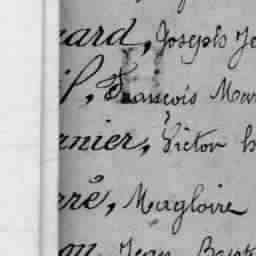 nard, Joseph
il, François Mar
rnier, Victor
rré, Magloire
on, Jean Bapt